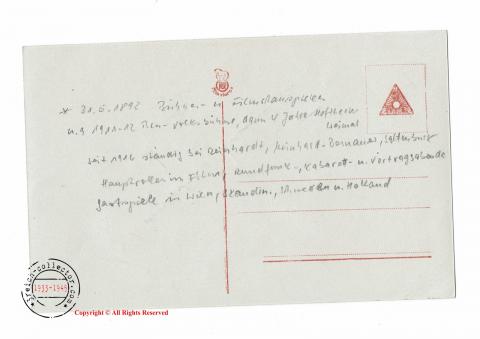 * 31.5.1892 Bühnen- u. Filmschauspieler
u.a 1911-12 Volksbühne, dann 4 Jahre Hoftheater
Weimar
seit 1916 ständig bei Reinhardt, Reinhardt-Barnowsky,
Hauptrollen im Film, Rundfunk-, Kabarett- u. Vortragsabende
Gastspiele in Wien, Skandin., u. Holland
3reich-collector.com
1933-1945
Copyright © All Rights Reserved